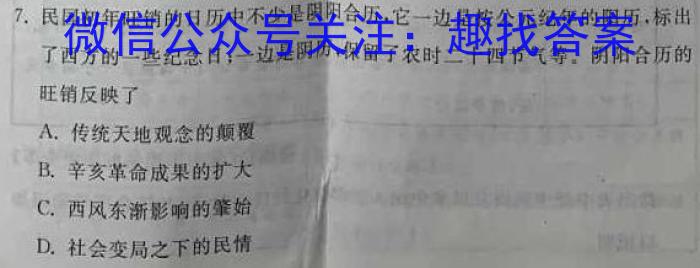 7. 民国初年旺销的日历中不少是阴阳合历,它一边是按公元纪年的阳历,标出
微信公众号关注：趣找答案
了西方的一些纪念日;一边是阴历,保留了农时二十四节气等。阴阳合历的
旺销反映了
A. 传统天地观念的颠覆
B. 辛亥革命成果的扩大
C. 西风东渐影响的肇始
D. 社会变局之下的民情